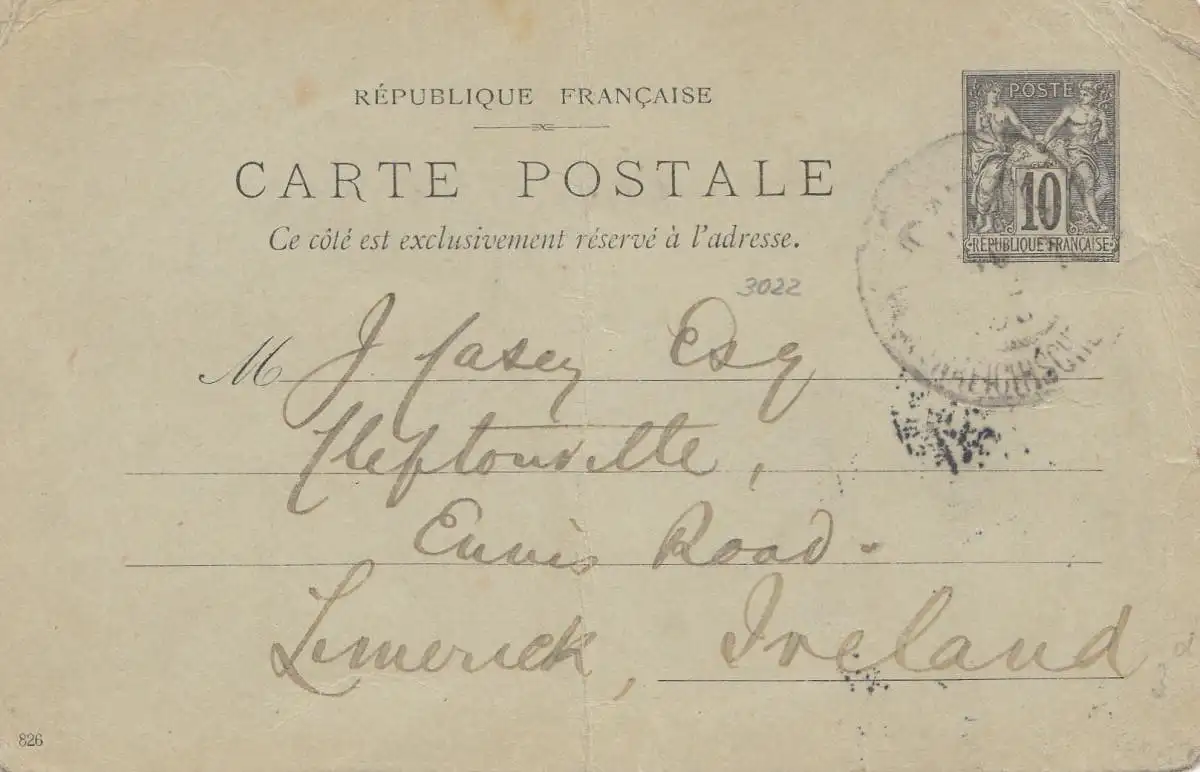 RÉPUBLIQUE FRANÇAISE
POSTE
CARTE POSTALE
10
Ce côté est exclusivement réservé à l'adresse.
RÉPUBLIQUE FRANÇAISE
3022
M J. Casey Esq
Cleftonville,
Ennis Road.
Limerick, Ireland
826